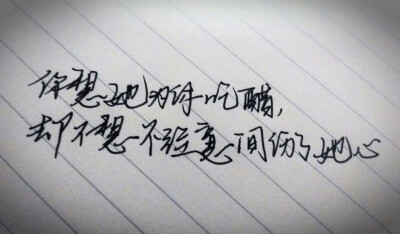 你想她为你吃醋,
却不想不经意间伤了她心